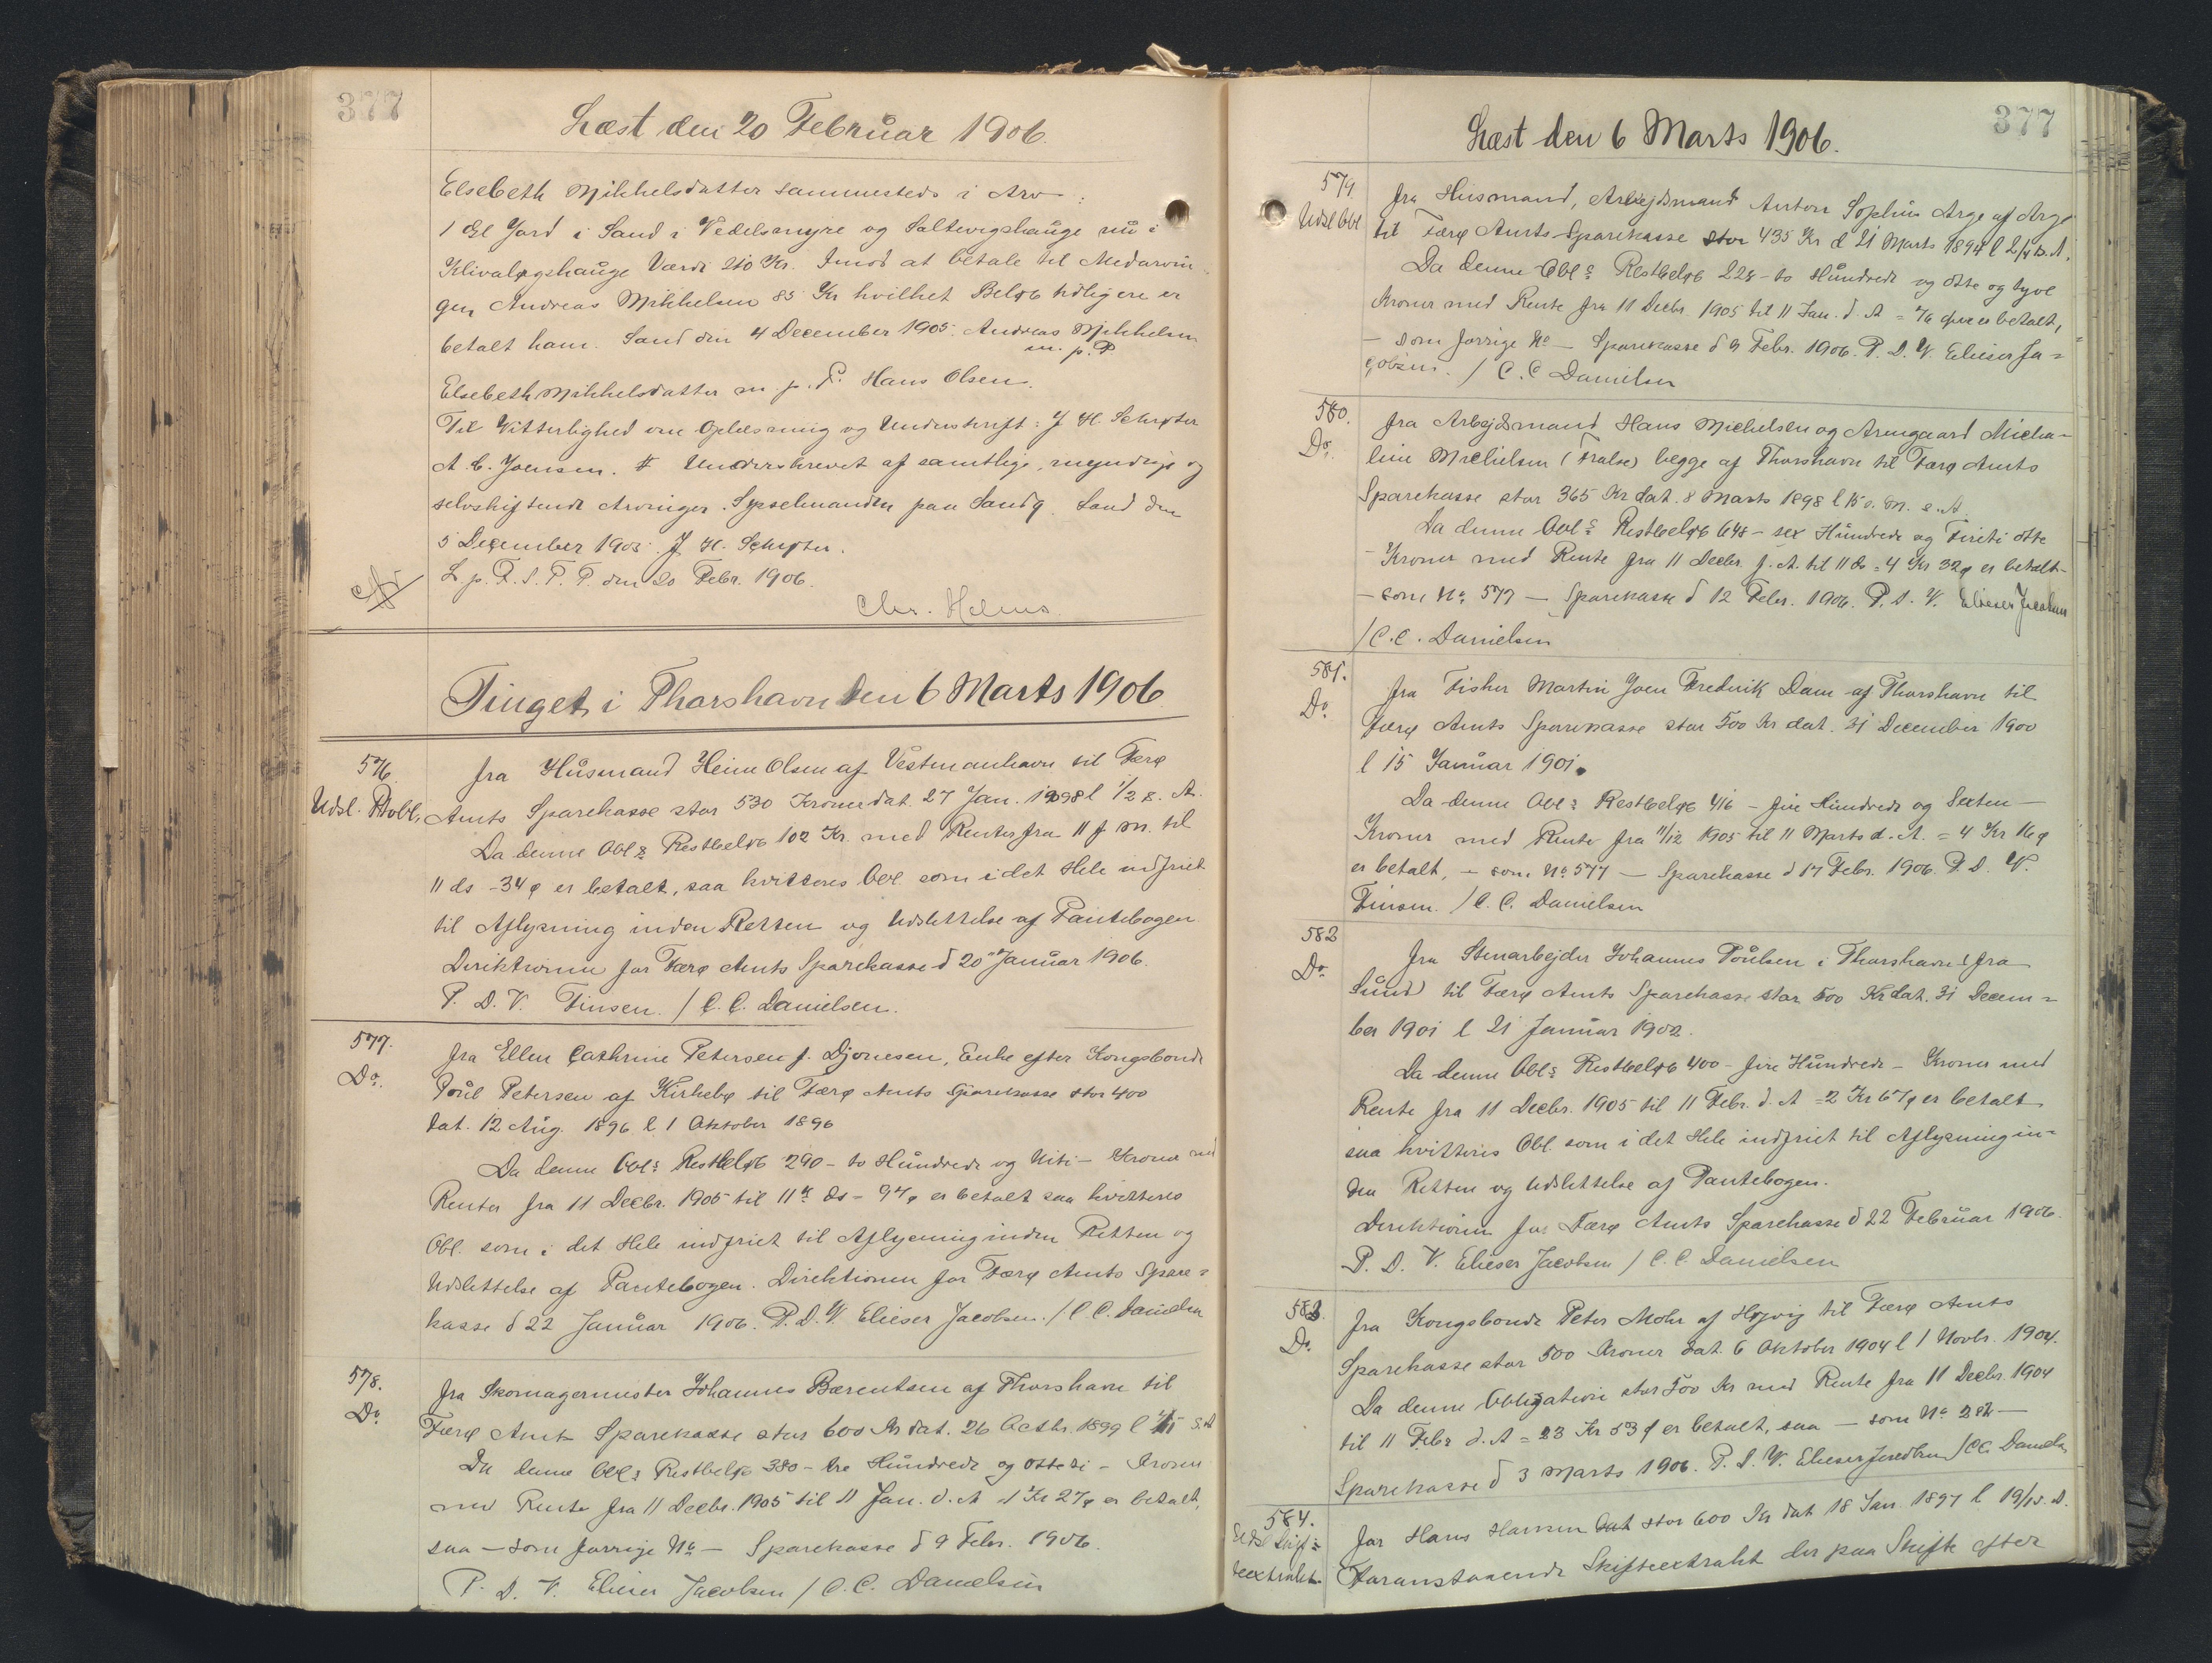 377
Læst den 20 Februar 1906.
Elsebeth Mikkelsdatter sammesteds i Arv:
1 Gl Jord i Sand i Vedelsmyre og Saltvigshauge nu i
Klivaløgshauge Værdi 210 Kr. Imod at betale til Medarvin-
gen Andreas Mikkelsen 85 Kr hvilket Beløb tidligere er
betalt ham. Sand den 4 December 1905. Andreas Mikkelsen
m. p. P
Elsebeth Mikkelsdatter m. p. P. Hans Olsen.
Til Vitterlighed om Oplæsning og Underskrift: J H. Schrøter
A. C. Joensen. # Underskrevet af samtlige, myndige og
selvskiftende Arvinger. Sysselmanden paa Sandø. Sand den
5 December 1905. J. H. Schrøter.
L p. T. i. T. den 20 Febr. 1906.
Chr. Helms
Tinget i Thorshavn den 6 Marts 1906
576.
Udsl. Pobl.
fra Husmand Heine Olsen af Vestmanhavn til Færø
Amts Sparekasse stor 530 Kroner dat. 27 Jan. 1898 l 1/2 s. A.
Da denne Obls Restbeløb 102 Kr. med Renter fra 11 f. M. til
11 ds - 34 ø er betalt, saa kvitteres Obl. som i det Hele indfriet
til Aflysning inden Retten og Udslettelse af Pantebogen
Direktionen for Færø Amts Sparekasse d 20 Januar 1906.
P. D. V. Finsen. / C. C. Danielsen.
577.
Do.
fra Ellen Cathrine Petersen f. Djonesen, Enke efter Kongsbonde
Poul Petersen af Kirkebø til Færø Amts Sparekasse stor 400
dat. 12 Aug. 1896 l. 1 Oktober 1896
Da denne Obls Restbeløb 290 - to Hundrede og Niti - Kroner med
Renter fra 11 Decbr. 1905 til 11 ds - 97 ø er betalt saa kvitteres
Obl. som i det Hele indfriet til Aflysning inden Retten og
Udslettelse af Pantebogen. Direktionen for Færø Amts Spare=
kasse d 22 Januar 1906. P. D. V. Elieser Jacobsen. / C C. Danielsen
578.
Do
fra Skomagermester Johannes Bærentsen af Thorshavn til
Færø Amts Sparekasse stor 600 Kr dat. 26 Octbr. 1899 l s. A
Da denne Obls Restbeløb 380 - tre Hundrede og otteti - Kroner
med Rente fra 11 Decbr. 1905 til 11 Jan. d. A = 1 Kr 27 ø er betalt,
saa - som forrige No - Sparekasse d 9 Febr. 1906.
P. D. V. Elieser Jacobsen / C. C. Danielsen
377
Læst den 6 Marts 1906.
579.
Udsl Obl
fra Husmand, Arbejdsmand Anton Sophus Arge af Arge
til Færø Amts Sparekasse stor 435 Kr d 21 Marts 1894 l 2/4 s. A.
Da denne Obls Restbeløb 228 - to Hundrede og otte og tyve
Kroner med Rente fra 11 Decbr. 1905 til 11 Jan. d. A = 76 Øre er betalt,
- som forrige No - Sparekasse d 9 Febr. 1906. P. D. V. Elieser Ja=
cobsen. / C. C Danielsen
580.
Do.
fra Arbejdsmand Hans Michelsen og Armgaard Micha-
line Michelsen (Tralse) begge af Thorshavn til Færø Amts
Sparekasse stor 365 Kr dat. 8 Marts 1898 l 15 s. M. s. A
Da denne Obls Restbeløb 648 - sex Hundrede og Firети otte
Kroner med Rente fra 11 Decbr. f. A. til 11 ds = 4 Kr 32 ø er betalt -
- som No 577 - Sparekasse d 12 Febr. 1906. P. D. V. Elieser Jacobsen
/ C. C. Danielsen
581.
Do.
fra Fisker Martin Joen Frederik Dam af Thorshavn til
Færø Amts Sparekasse stor 500 Kr dat. 31 December 1900
l 15 Januar 1901.
Da denne Obls Restbeløb 416 - fire Hundrede og Sexten -
Kroner med Rente fra 11/12 1905 til 11 Marts d. A. = 4 Kr 16 ø
er betalt, - som No 577 - Sparekasse d 17 Febr. 1906. P. D. V.
Finsen. / C. C. Danielsen
582
Do.
fra Stenarbejder Johannes Poulsen i Thorshavn (fra
Sund) til Færø Amts Sparekasse stor 500 Kr dat. 31 Decem=
ber 1901 l 21 Januar 1902.
Da denne Obls Restbeløb 400 - fire Hundrede - Kroner med
Rente fra 11 Decbr. 1905 til 11 Febr. d. A = 2 Kr 67 ø er betalt
saa kvitteres Obl. som i det Hele indfriet til Aflysning in=
den Retten og Udslettelse af Pantebogen.
Direktionen for Færø Amts Sparekasse d 22 Februar 1906.
P. D. V. Elieser Jacobsen / C. C. Danielsen
583.
Do.
fra Kongsbonde Peter Mohr af Hojvig til Færø Amts
Sparekasse stor 500 Kroner dat. 6 Oktober 1904 l 1 Novbr. 1904.
Da denne Obligation stor 500 Kr med Rente fra 11 Decbr. 1904
til 11 Febr d. A = 23 Kr 53 ø er betalt, saa - som No 282 -
Sparekasse d 3 Marts 1906. P. D. V. Elieser Jacobsen / CC. Danielsen
584.
Udsl Skift=
eextrakt
for Hans Hansen dat stor 600 Kr dat 18 Jan. 1897 l 19/1 s. A.
Foranstaaende Skifteextrakt der paa Skifte efter